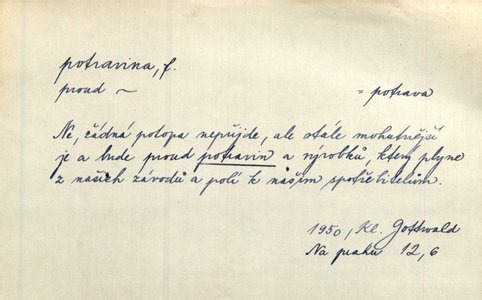 potravina, f.
proud ~ = potrava
Ne, žádná potopa nepřijde, ale stále mohutnější
je a bude proud potravin a výrobků, který plyne
z našich závodů a polí k našim spotřebitelům.
1950, Kl. Gottwald
Na prahu 12, 6